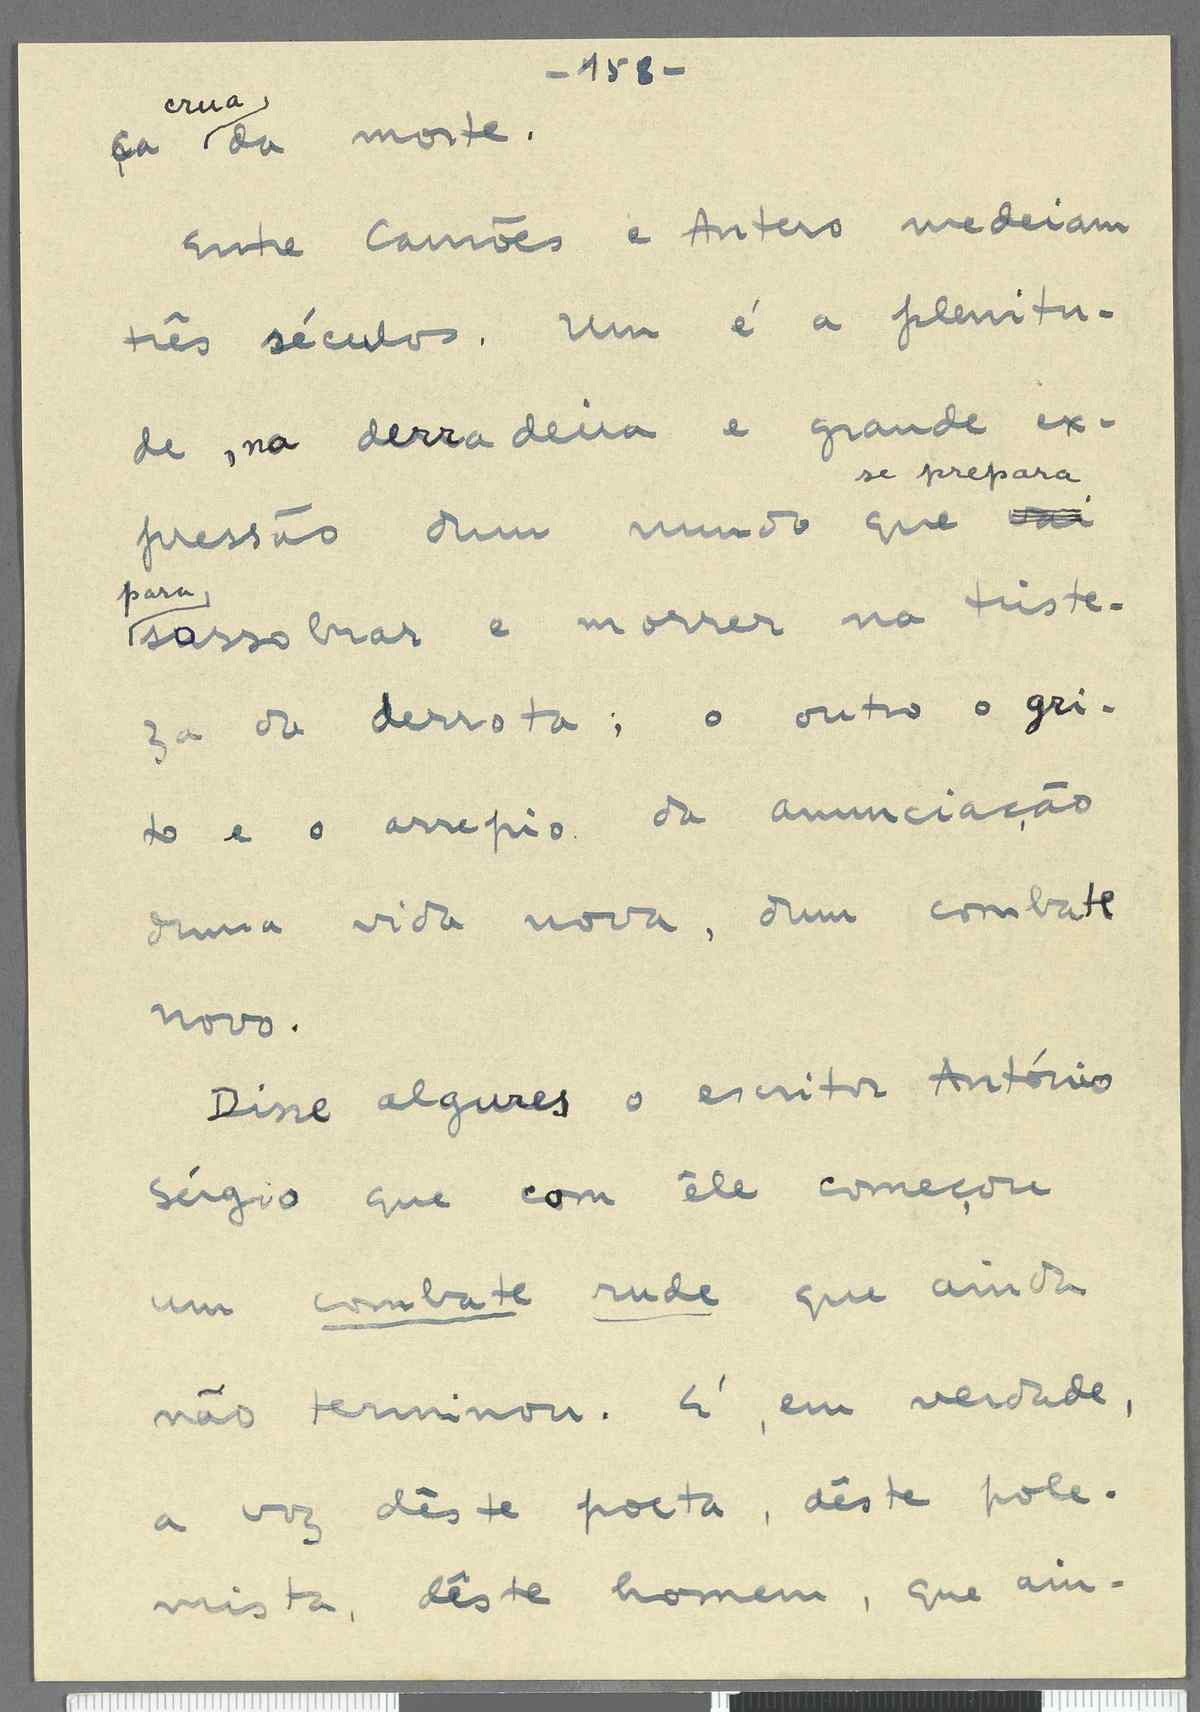 -158-
crua
ça da morte.
Entre Camões e Antero medeiam
três séculos. Um é a plenitu-
de, na derradeira e grande ex-
se prepara
pressão dum mundo que vai
para
sossobrar e morrer na triste-
za da derrota; o outro o gri-
to e o arrepio da anunciação
duma vida nova, dum combate
novo.
Disse algures o escritor António
Sérgio que com êle começou
um combate rude que ainda
não terminou. É, em verdade,
a voz dêste poeta, dêste pole-
mista, dêste homem, que ain-